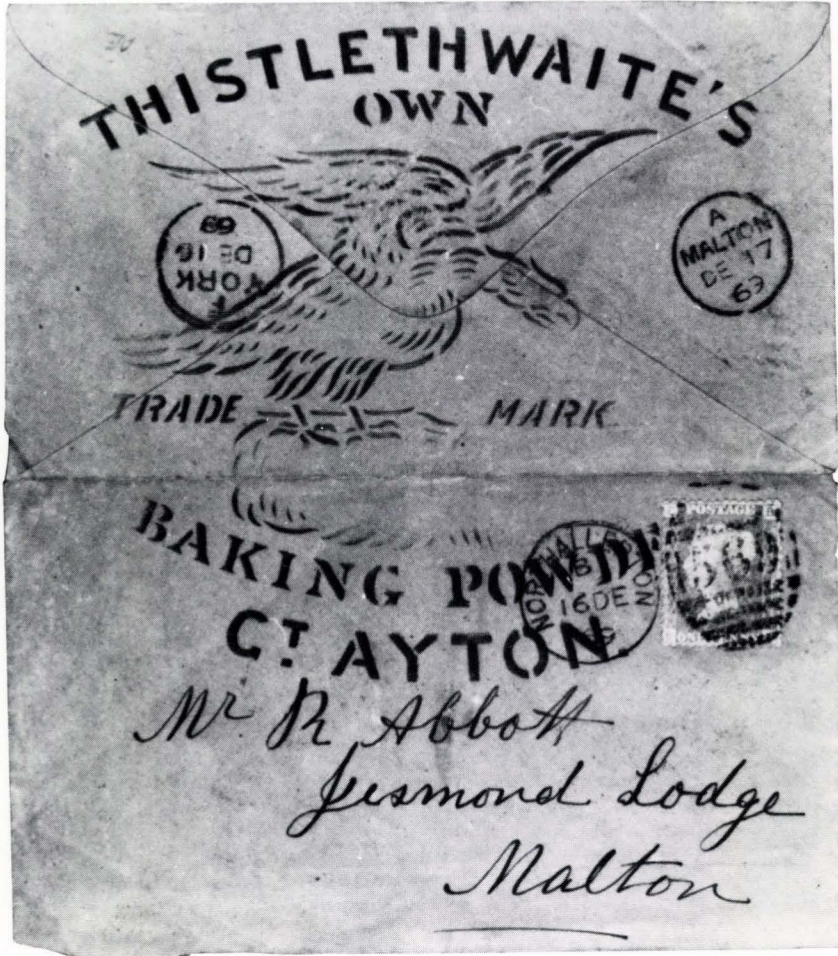 THISTLETHWAITE'S
OWN
YORK
DE 16
69
A
MALTON
DE 17
69
TRADE MARK
BAKING POWDE
CT. AYTON.
NORTHALLERTON
16 DE
POSTAGE
Mr. R Abbott
Jesmond Lodge
Malton